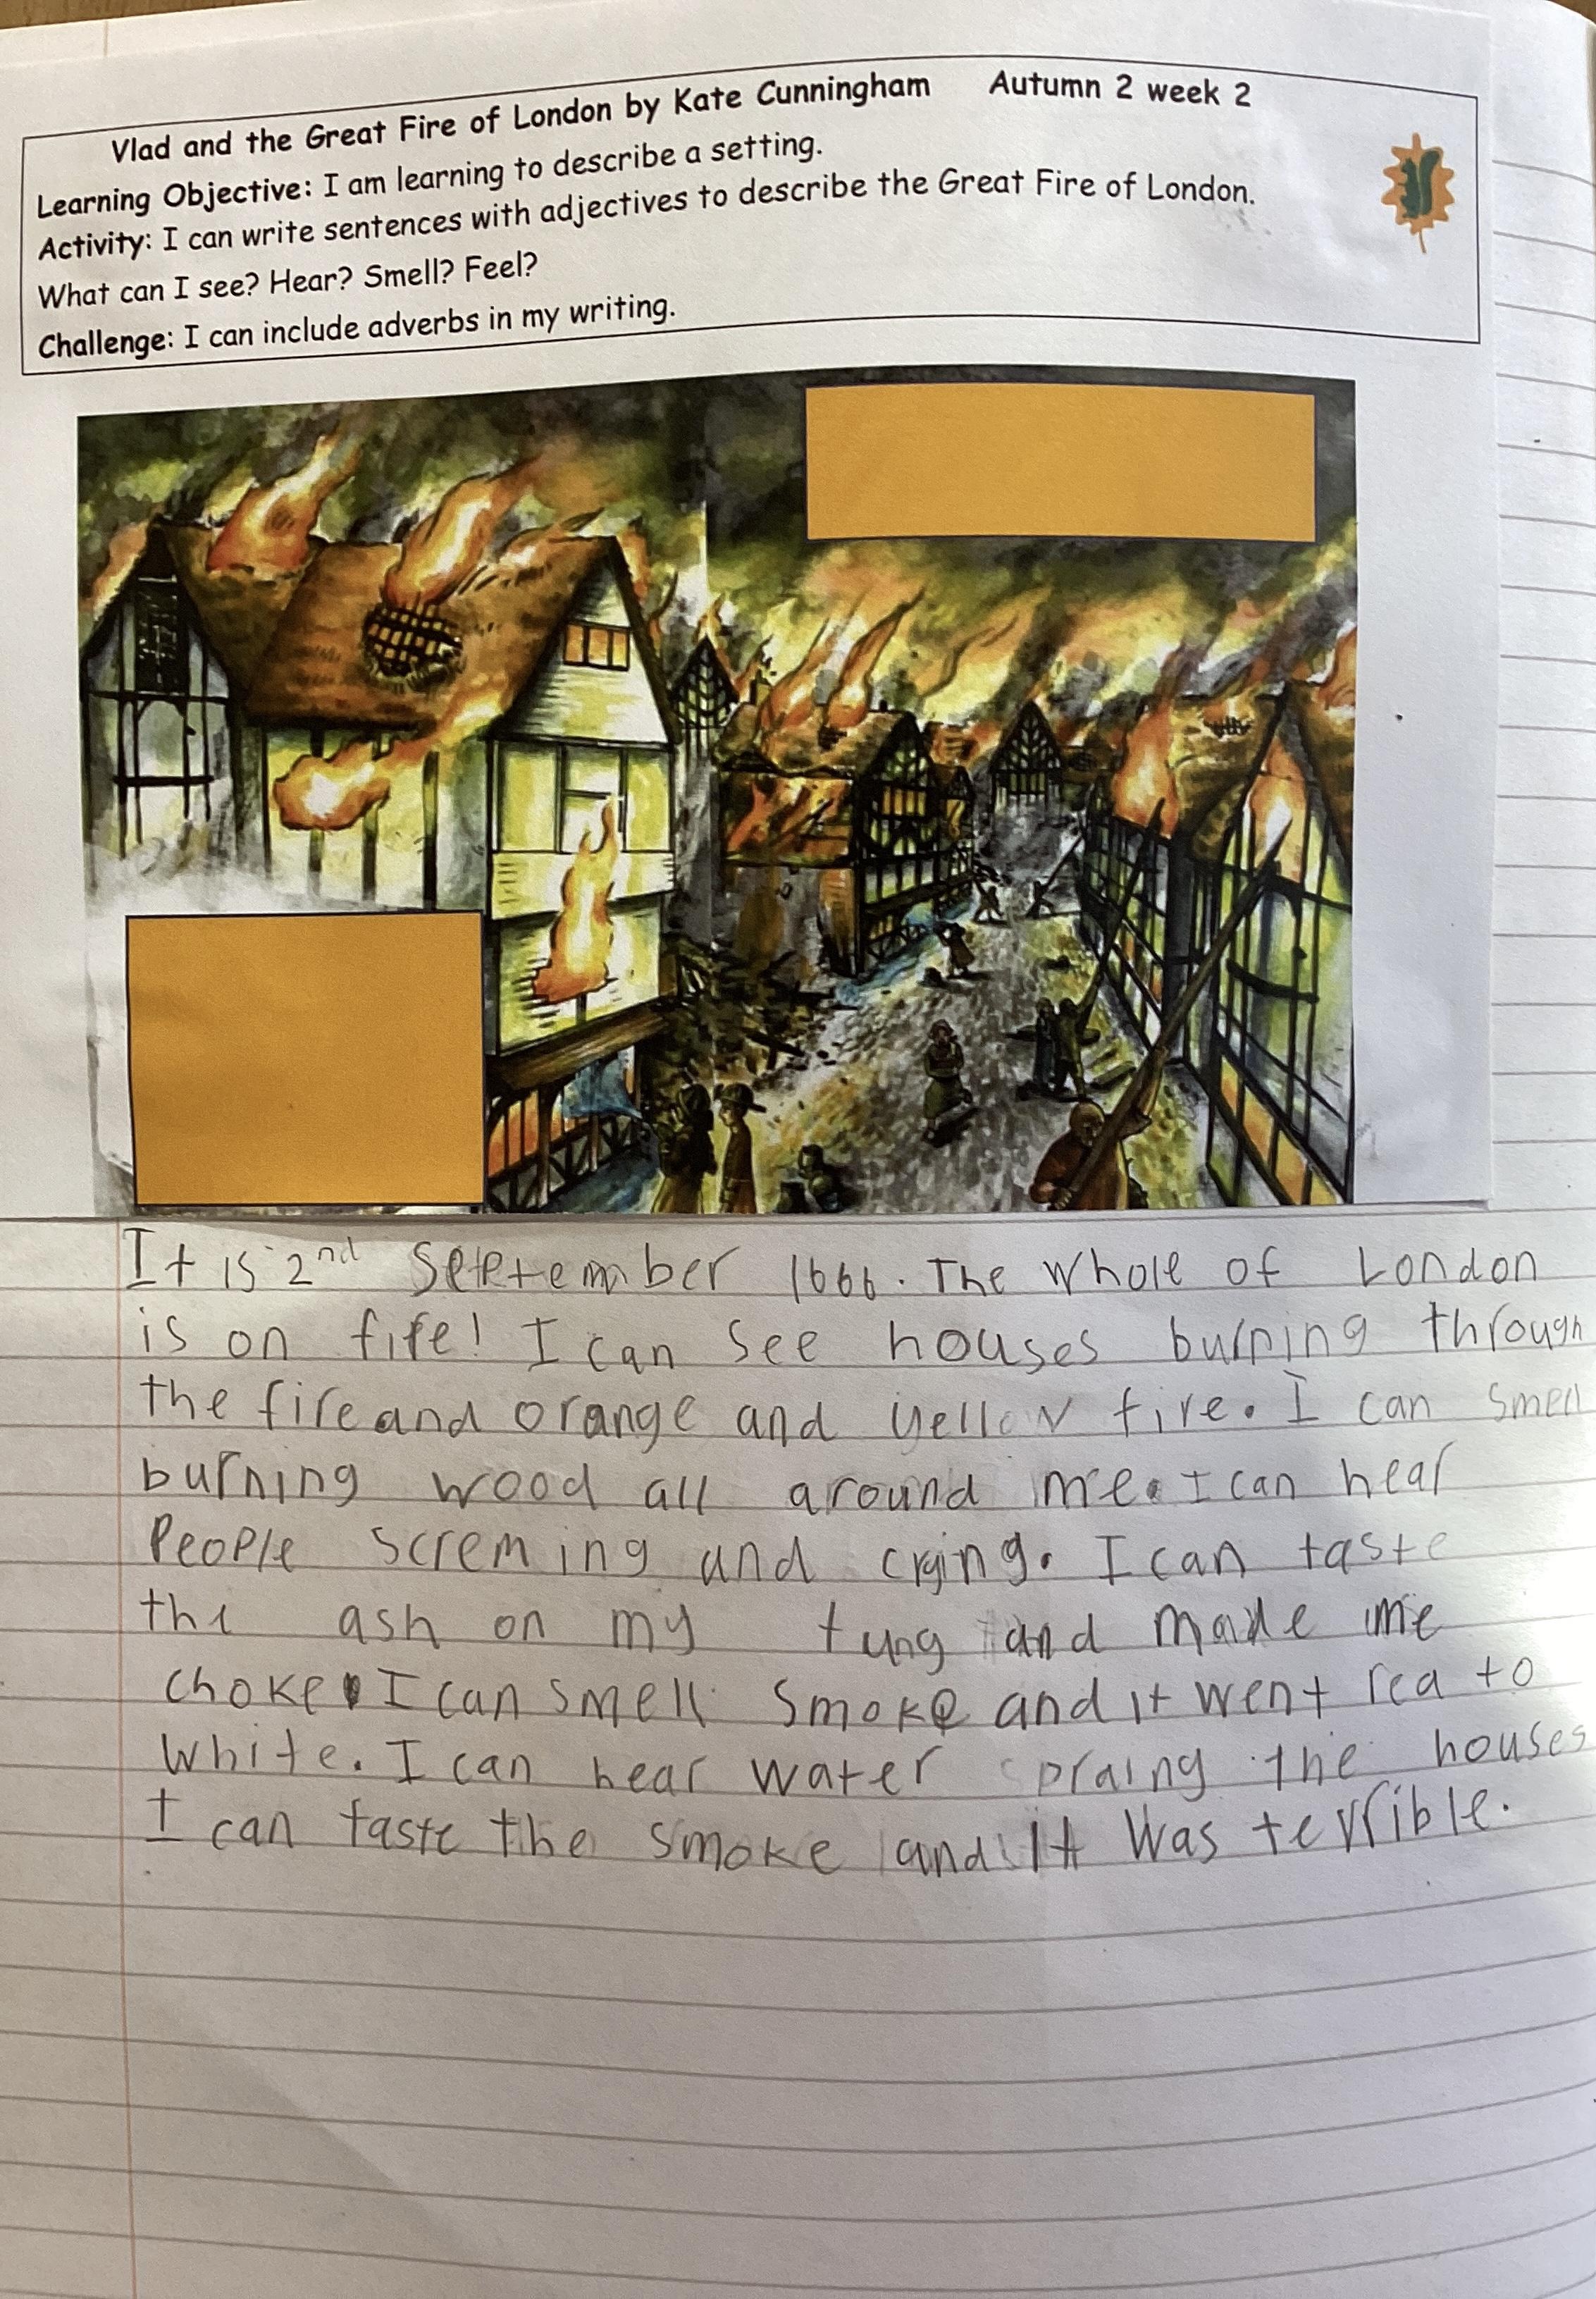 Vlad and the Great Fire of London by Kate Cunningham Autumn 2 week 2
Learning Objective: I am learning to describe a setting.
Activity: I can write sentences with adjectives to describe the Great Fire of London.
What can I see? Hear? Smell? Feel?
Challenge: I can include adverbs in my writing.
It is 2nd September 1666. The whole of London
is on fire! I can see houses burning through
the fire and orange and yellow fire. I can smell
burning wood all around me. I can hear
People screming and crying. I can taste
the ash on my tung and made me
choke. I can smell smoke and it went red to
white. I can hear water spraing the houses
I can taste the smoke and it was terrible.